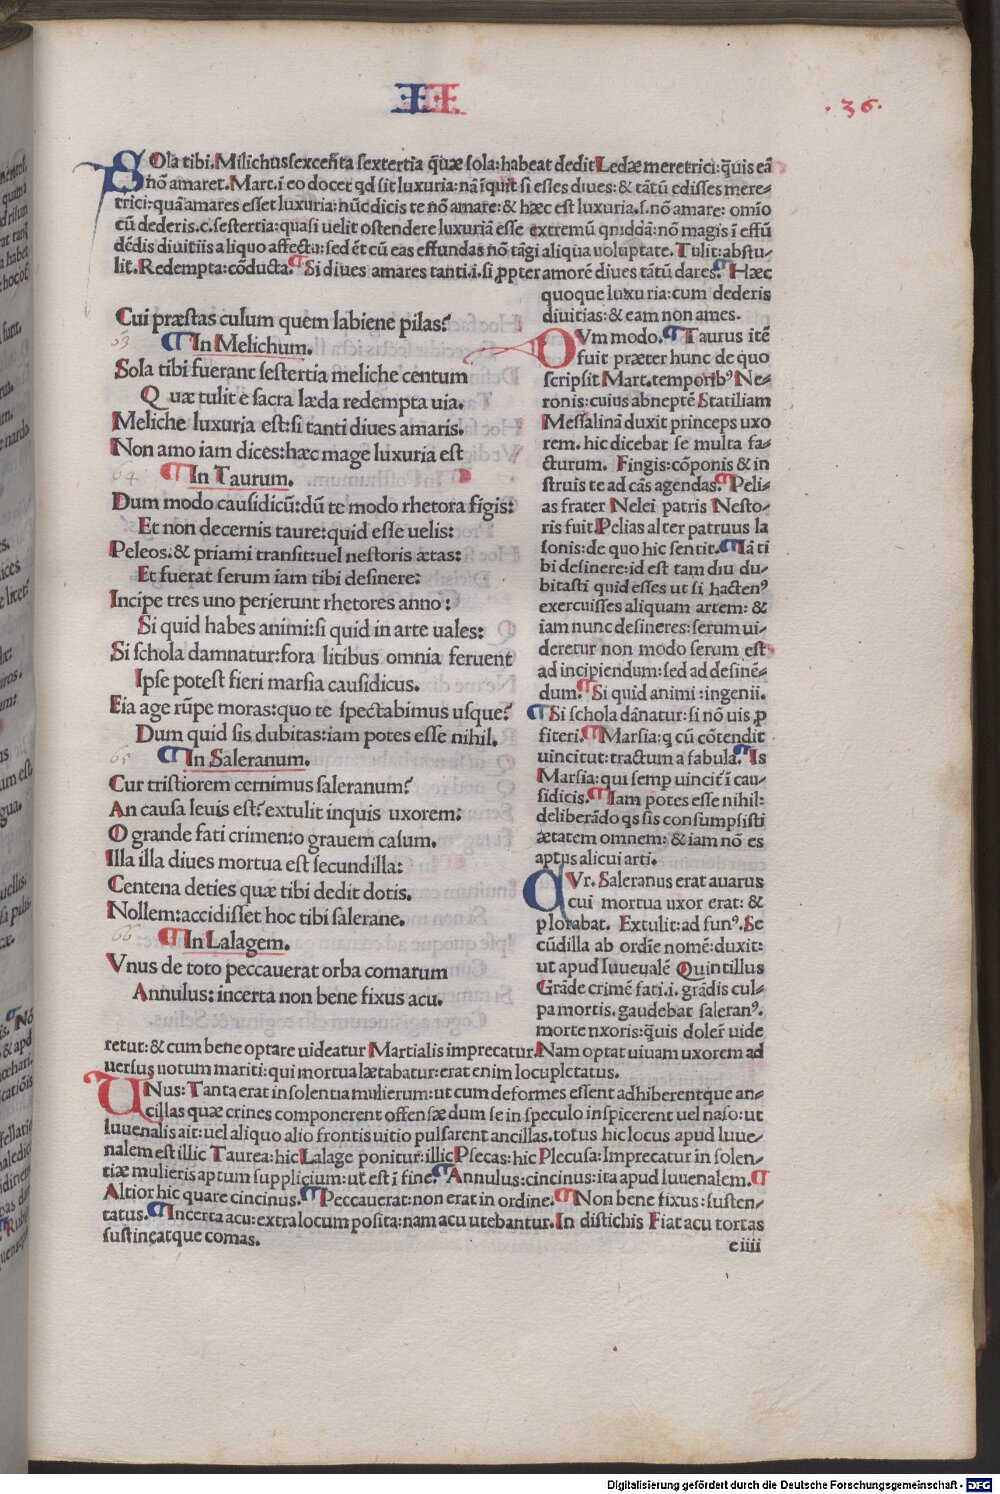 II
.36.
SOla tibi.Milichus sexcẽta sextertia q̃uæ sola:habeat dedit Ledæ meretrici:q̃uis eã
nõ amaret.Mart.ĩ eo docet qd sit luxuria:nã ĩquit si esses diues:& tãtũ edisses mere-
trici:quã amares esset luxuria:nũc dicis te nõ amare:& hæc est luxuria.s.nõ amare: omĩo
cũ dederis.c.sestertia:quasi uelit ostendere luxuriã esse extremũ quiddã:nõ magis ĩ effũ
dẽdis diuitiis aliquo affectu:sed ẽt cũ eas effundas nõ tãgi aliqua uoluptate.Tulit:abstu-
lit.Redempta:cõducta.¶Si diues amares tanti.i.si ꝓpter amorẽ diues tãtũ dares.¶Hæc
quoque luxuria:cum dederis
diuitias:& eam non ames.
Cui præstas culum quem labiene pilas?
63
¶In Melichum.
Sola tibi fuerant sestertia meliche centum
Quæ tulit e sacra læda redempta uia.
Meliche luxuria est:si tanti diues amaris.
Non amo iam dices:hæc mage luxuria est
64
¶In Taurum.
Dum modo causidicũ:dũ te modo rhetora fĩgis:
Et non decernis taure:quid esse uelis:
Peleos.& priami transit:uel nestoris ætas:
Et fuerat serum iam tibi desinere:
Incipe tres uno perierunt rhetores anno:
Si quid habes animi:si quid in arte uales:
Si schola damnatur:fora litibus omnia feruent
Ipse potest fieri marsia causidicus.
Eia age rũpe moras:quo te spectabimus usque?
Dum quid sis dubitas:iam potes esse nihil.
65
¶In Saleranum.
Cur tristiorem cernimus saleranum?
An causa leuis est? extulit inquis uxorem:
O grande fati crimen:o grauem casum.
Illa illa diues mortua est secundilla:
Centena deties quæ tibi dedit dotis.
Nollem:accidisset hoc tibi salerane.
66
¶In Lalagem.
Vnus de toto peccauerat orba comarum
Annulus: incerta non bene fixus acu.
DVm modo.¶Taurus itẽ
fuit præter hunc de quo
scripsit Mart.temporibꝰ Ne-
ronis:cuius abneptẽ Statiliam
Messalinã duxit princeps uxo
rem. hic dicebat se multa fa-
cturum. Fingis:cõponis & in
struis te ad cãs agendas.¶Peli-
as frater Nelei patris Nesto-
ris fuit.Pelias alter patruus Ia
sonis:de quo hic sentit.¶Iã ti
bi desinere:id est tam diu du-
bitasti quid esses ut si hactenꝰ
exercuisses aliquam artem: &
iam nunc desineres:serum ui-
deretur non modo serum est
ad incipiendum:sed ad desinẽ-
dum.¶Si quid animi:ingenii.
¶Si schola dãnatur:si nõ uis ꝓ
fiteri.¶Marsia:q cũ cõtendit
uincitut:tractum a fabula.¶Is
Marsia:qui semp uincit̃ ĩ cau-
sidicis.¶Iam potes esse nihil:
deliberãdo qs sis consumpsisti
ætatem omnem: & iam nõ es
aptus alicui arti.
CVr. Saleranus erat auarus
cui mortua uxor erat: &
plorabat. Extulit:ad funꝰ.Se
cũdilla ab ordĩe nomẽ:duxit:
ut apud Iuueualẽ Quintillus
Grãde crimẽ fati.i. grãdis cul-
pa mortis. gaudebat saleranꝰ.
morte nxoris:q̃uis doler̃ uide
retur:& cum bene optare uideatur Martialis imprecatur.Nam optat uiuam uxorem ad
uersus uotum mariti:qui mortua lætabatur:erat enim locupletatus.
UNus: Tanta erat insolentia mulierum:ut cum deformes essent adhiberentque an-
cillas quæ crines componerent offensæ dum se in speculo inspicerent uel naso:ut
Iuuenalis ait:uel aliquo alio frontis uitio pulsarent ancillas.totus hic locus apud Iuue-
nalem est illic Taurea:hic Lalage ponitur:illic Psecas:hic Plecusa:Imprecatur in solen-
tiæ mulieris aptum supplicium:ut est ĩ fine.¶Annulus:cincinus:ita apud Iuuenalem.¶
Altior hic quare cincinus.¶Peccauerat:non erat in ordine.¶Non bene fixus:susten-
tatus.¶Incerta acu:extra locum posita:nam acu utebantur.In distichis Fiat acu tortas
sustineatque comas.
eiiii
Digitalisierung gefördert durch die Deutsche Forschungsgemeinschaft - DFG